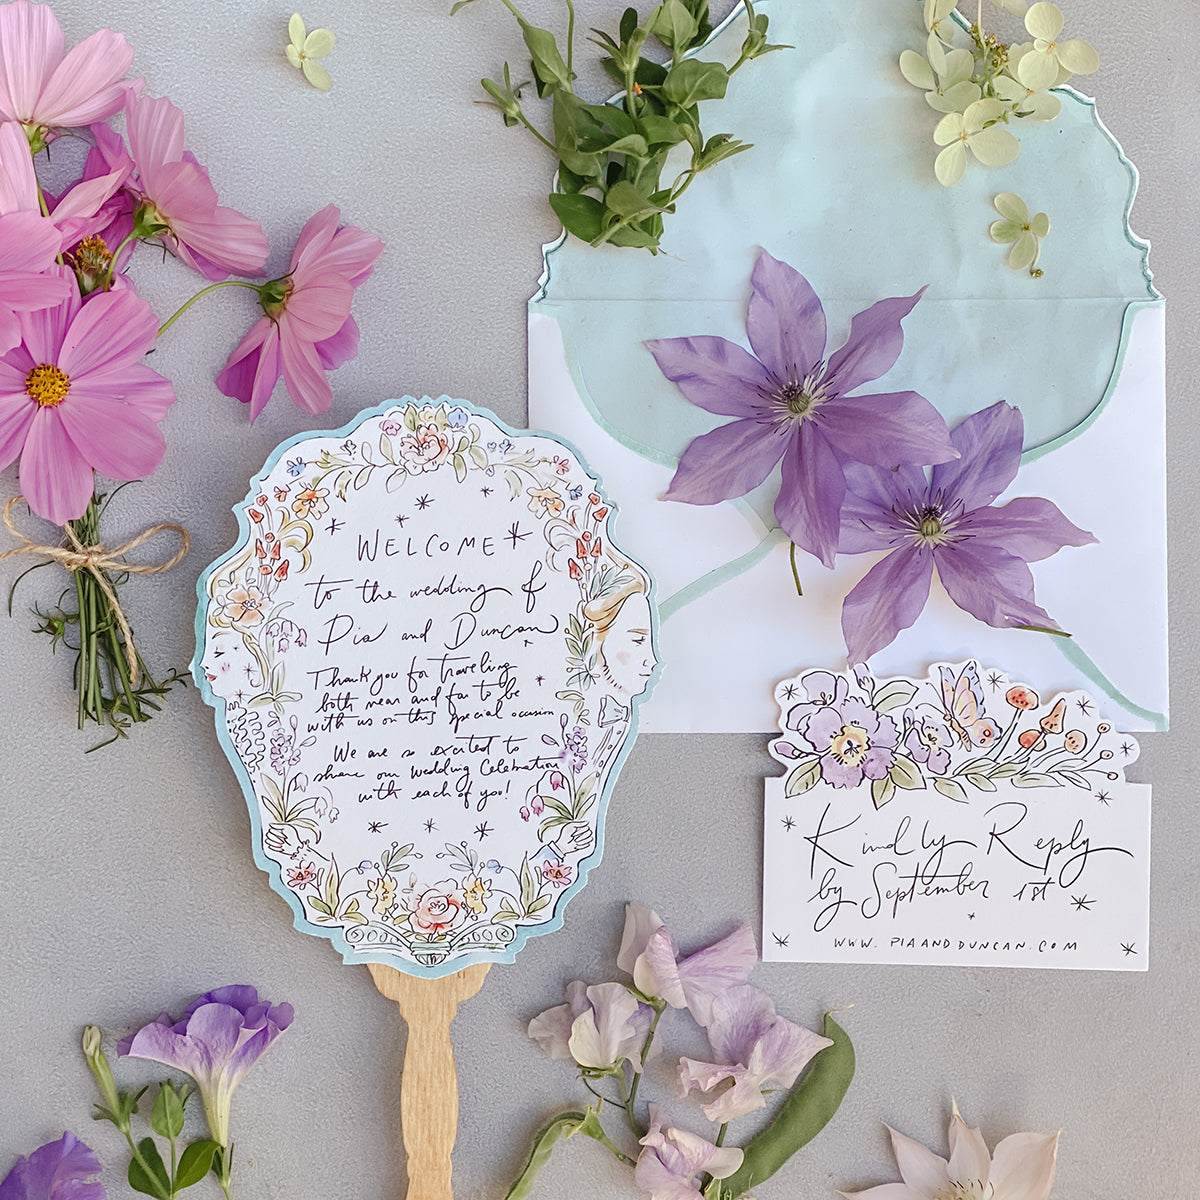 WELCOME
to the wedding of
Pia and Duncan
Thank you for traveling
both near and far to be
with us on this special occasion
We are so excited to
share our Wedding Celebration
with each of you!
Kindly Reply
by September 1st
WWW.PIAANDDUNCAN.COM